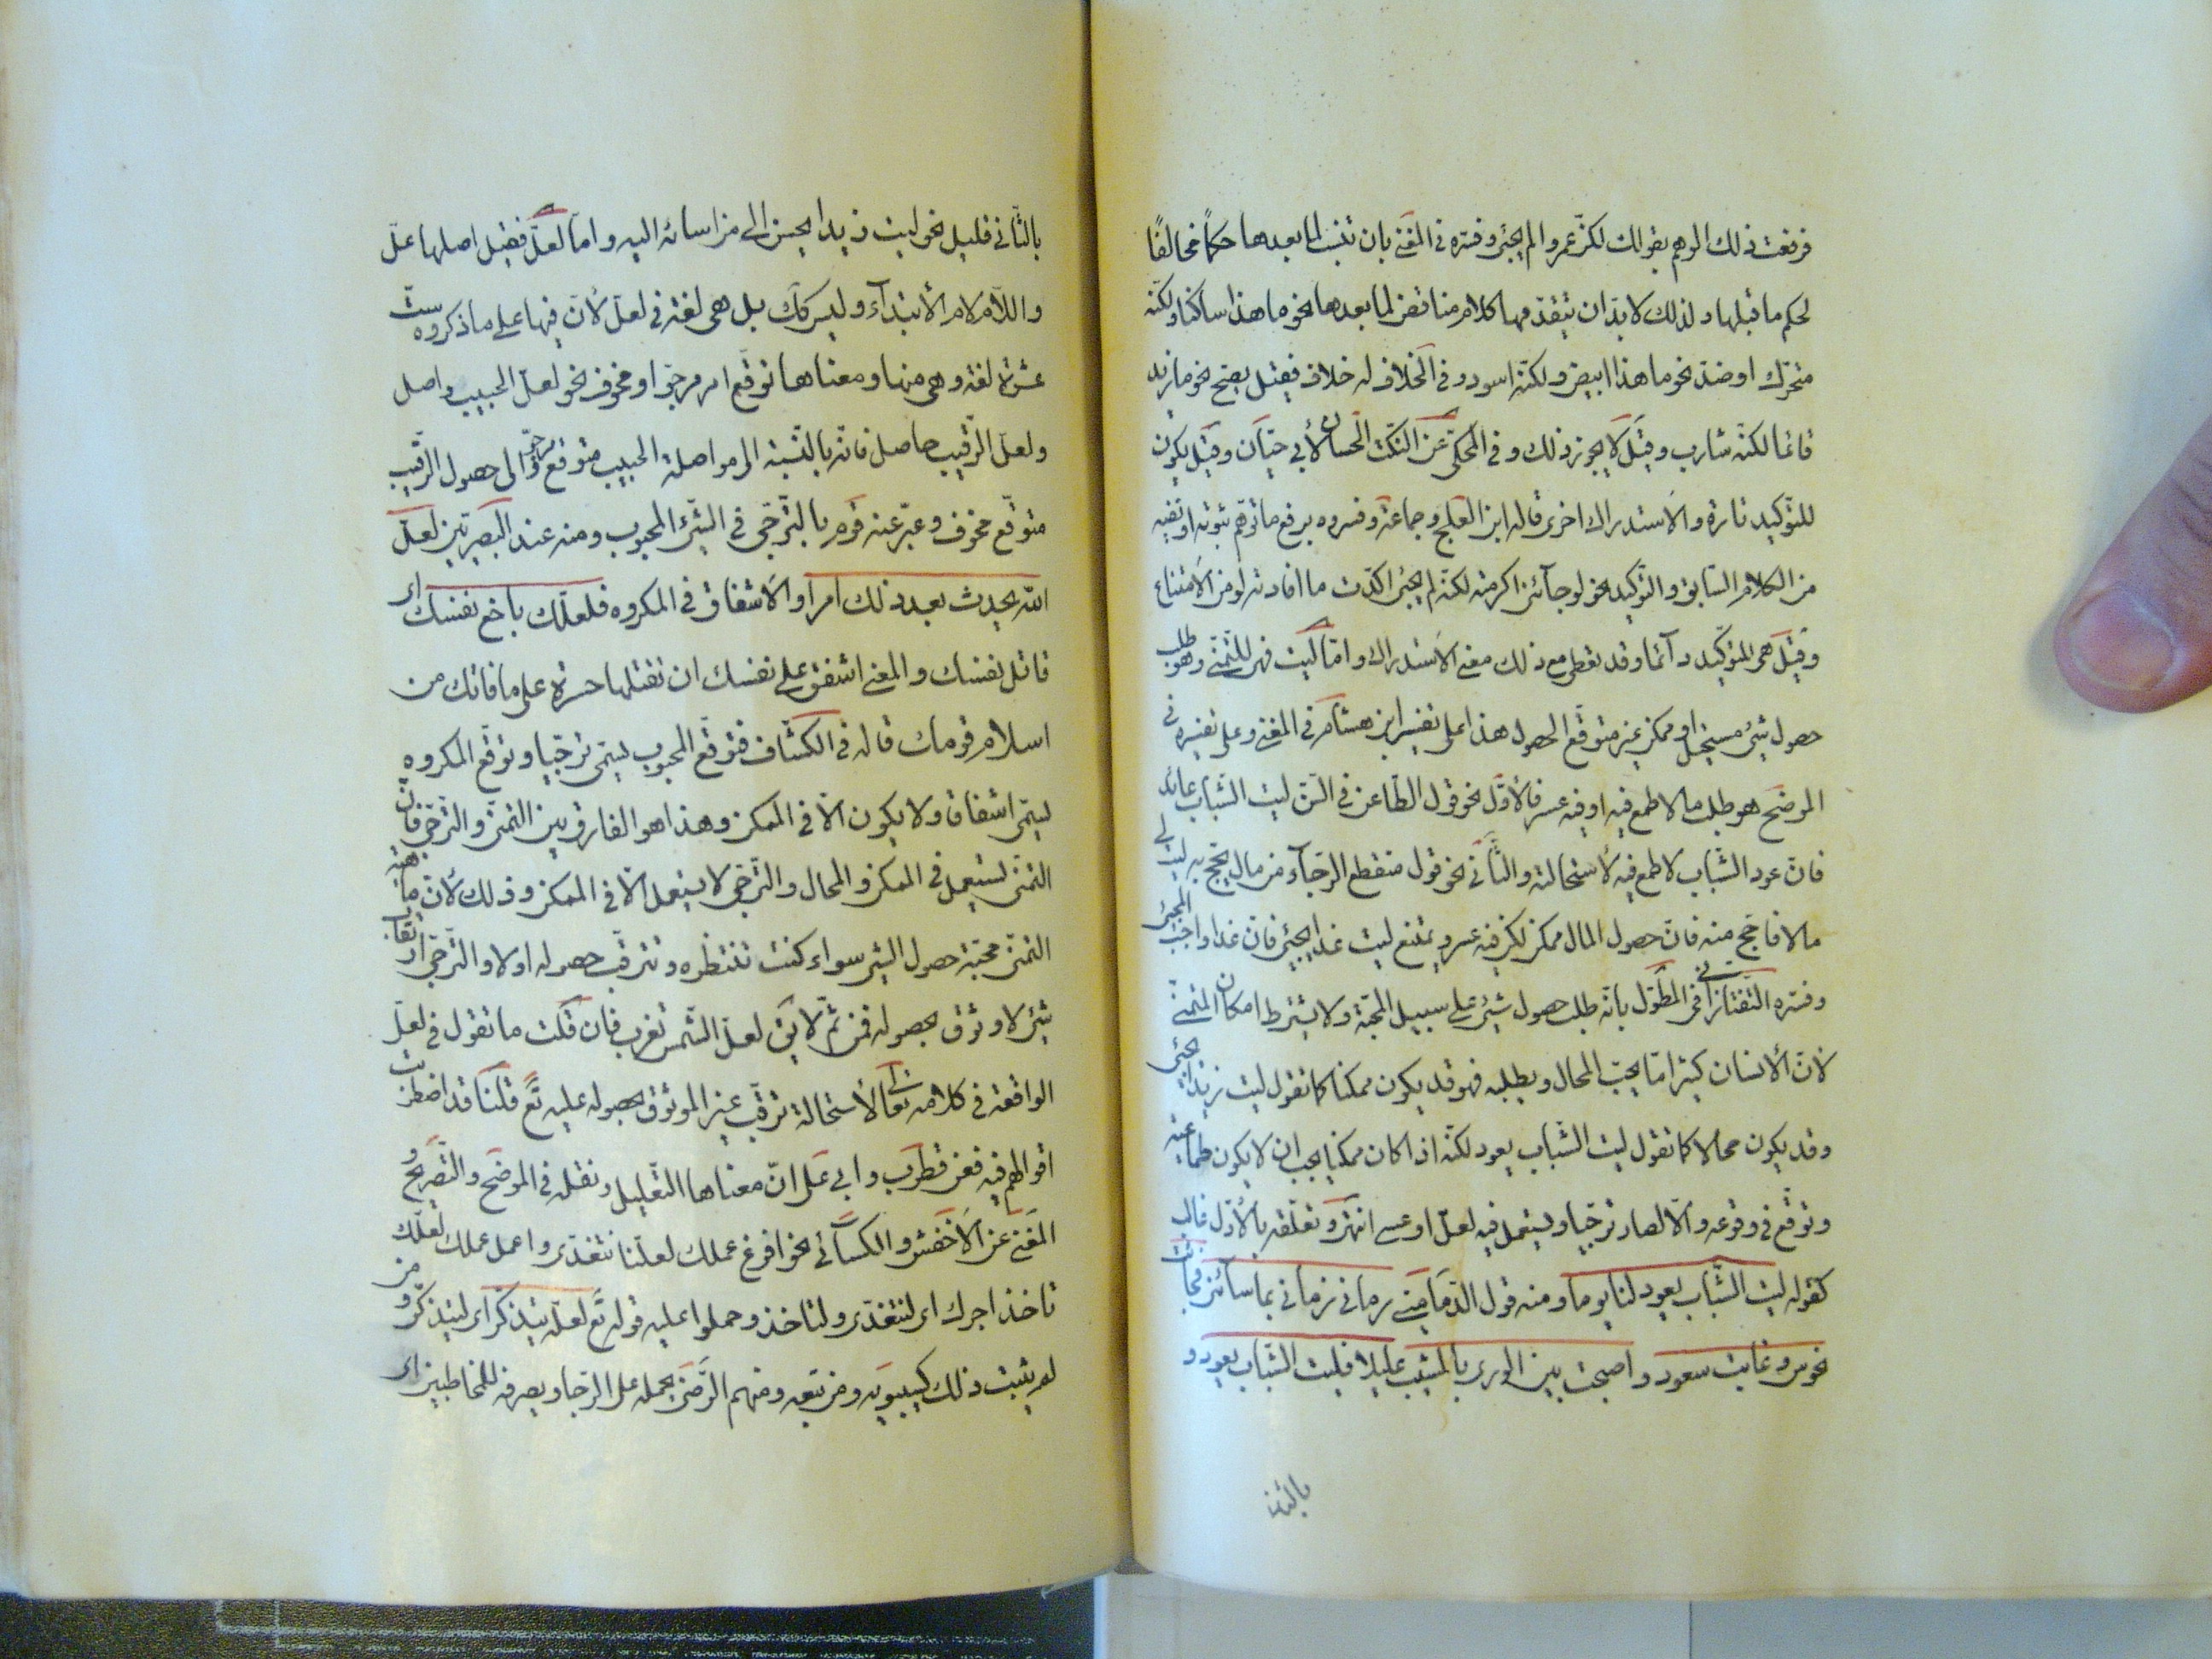 فرفعت ذلك الوهم بقولك لكنّ عمروا لم يجئ وفسّره في المغني بان تنسب لما بعدها حكماً مخالفاً
لحكم ما قبلها ولذلك لا بدّ ان يتقدّمها كلام مناقض لما بعدها نحو ما هذا ساكنا ولكنّه
متحرّك او ضدّ نحو ما هذا ابيض ولكنّه اسود وفي الخلاف له خلاف فقيل يصحّ نحو ما زيد
قائما لكنّه شارب وقيل لا يجوز ذلك وفي المحكي عن النكت الحسان لأبي حيّان وقيل يكون
للتوكيد تارة والاستدراك اخرى قاله ابن العلج وجماعة وفسروه برفع ما توهّم ثبوته او نفيه
من الكلام السّابق والتّوكيد نحو لو جآئني اكرمته لكنّه لم يجئ اكّدت ما افادته لو من الامتناع
وقيل هي للتوكيد دآئما وقد يعطى مع ذلك معنى الاستدراك وامّا ليت فهي للتّمنّي وهو طلب
حصول شئ مستحيل او ممكن غير متوقّع الحصول هذا على تفسير ابن هشام في المغني وعلى تفسيره في
الموضح هو طلب ما لا طمع فيه او فيه عسر فالأوّل نحو قول الطّاعن في السّنّ ليت الشّباب عائد
فانّ عود الشّباب لا طمع فيه لاستحالته والثّاني نحو قول منقطع الرّجآء من مال يحجّ به ليت لي
مالا فاحجّ منه فانّ حصول المال ممكن لكن فيه عسر ويمتنع ليت غدا يجيئ فانّ غدا واجب المجيئ
وفسّره التفتازاني في المطوّل بانّه طلب حصول شئ على سبيل المحبّة ولا يشترط امكان المتمنّى
لأنّ الأنسان كثيرا مّا يحبّ المحال ويطلبه فهو قد يكون ممكنا كما تقول ليت زيدا يجيئ
وقد يكون محالا كما تقول ليت الشّباب يعود لكنّه اذا كان ممكنا يجب ان لا يكون طماعية
وتوقّع في وقوعه والّا لصار ترجّيا ويستعمل فيه لعلّ او عسى انتهى وتعلّقه بالأوّل غالب
كقوله ليت الشّباب يعود لنا يوما ومنه قول الدّماميني رماني زماني بما سآئني فجآئت
نحوس وغابت سعود واصبحت بين الورى بالمشيب عليلا فليت الشّباب يعود و
بالثّاني
بالثّاني قليل نحو ليت زيدا يحسن الى من اسائه اليه وامّا لعلّ فقيل اصلها علّ
واللّام لام الأبتدآء وليس كك بل هي لغة في لعلّ لأنّ فيها على ما ذكروه ستّ
عشرة لغة وهي منها ومعناها توقّع امر مرجوّ او مخوف نحو لعلّ الحبيب واصل
ولعلّ الرّقيب حاصل فانّه بالنّسبة الى مواصلة الحبيب متوقّع مرجوّ والى حصول الرّقيب
متوقّع مخوف وعبّر عنه قوم بالترّجي في الشّئ المحبوب ومنه عند البصريّين لعلّ
اللّه يحدث بعد ذلك امرا والاشفاق في المكروه فلعلّك باخع نفسك اى
قاتل نفسك والمعنى اشفق على نفسك ان تقتلها حسرة على ما فاتك من
اسلام قومك قاله في الكشّاف فتوقّع المحبوب يسمّى ترجّيا وتوقّع المكروه
يسمّى اشفاقا ولا يكون الّا في الممكن وهذا هو الفارق بين التمنّي والترّجي فانّ
التمنّي يستعمل في الممكن والمحال والترّجي لا يستعمل الّا في الممكن وذلك لأنّ ماهيّة
التمنّي محبّة حصول الشئ سواء كنت تنتظره وتترقّب حصوله او لا والترّجي ارتقاب
شئ لا وثوق بحصوله فمن ثمّ لا يق لعلّ الشّمس تغرب فان قلت ما تقول في لعلّ
الواقعة في كلامه تعالى لأستحالة ترقّب غير الموثوق بحصوله عليه تع قلنا قد اضطربت
اقوالهم فيه فعن قطرب وابي على انّ معناها التّعليل ونقله في الموضح والتّصريح و
المغني عن الأخفش والكسآئي نحو افرغ عملك لعلّنا نتغدّى واعمل عملك لعلّك
تاخذ اجرك اى لنتغدّى ولتاخذ وحملوا عليه قوله تع لعلّه يتذكّر اى ليتذكّر ومن
لم يثبت ذلك كسيبويه ومن تبعه ومنهم الرّضيّ يحمله على الرّجا ويصرفه للمخاطبين اى